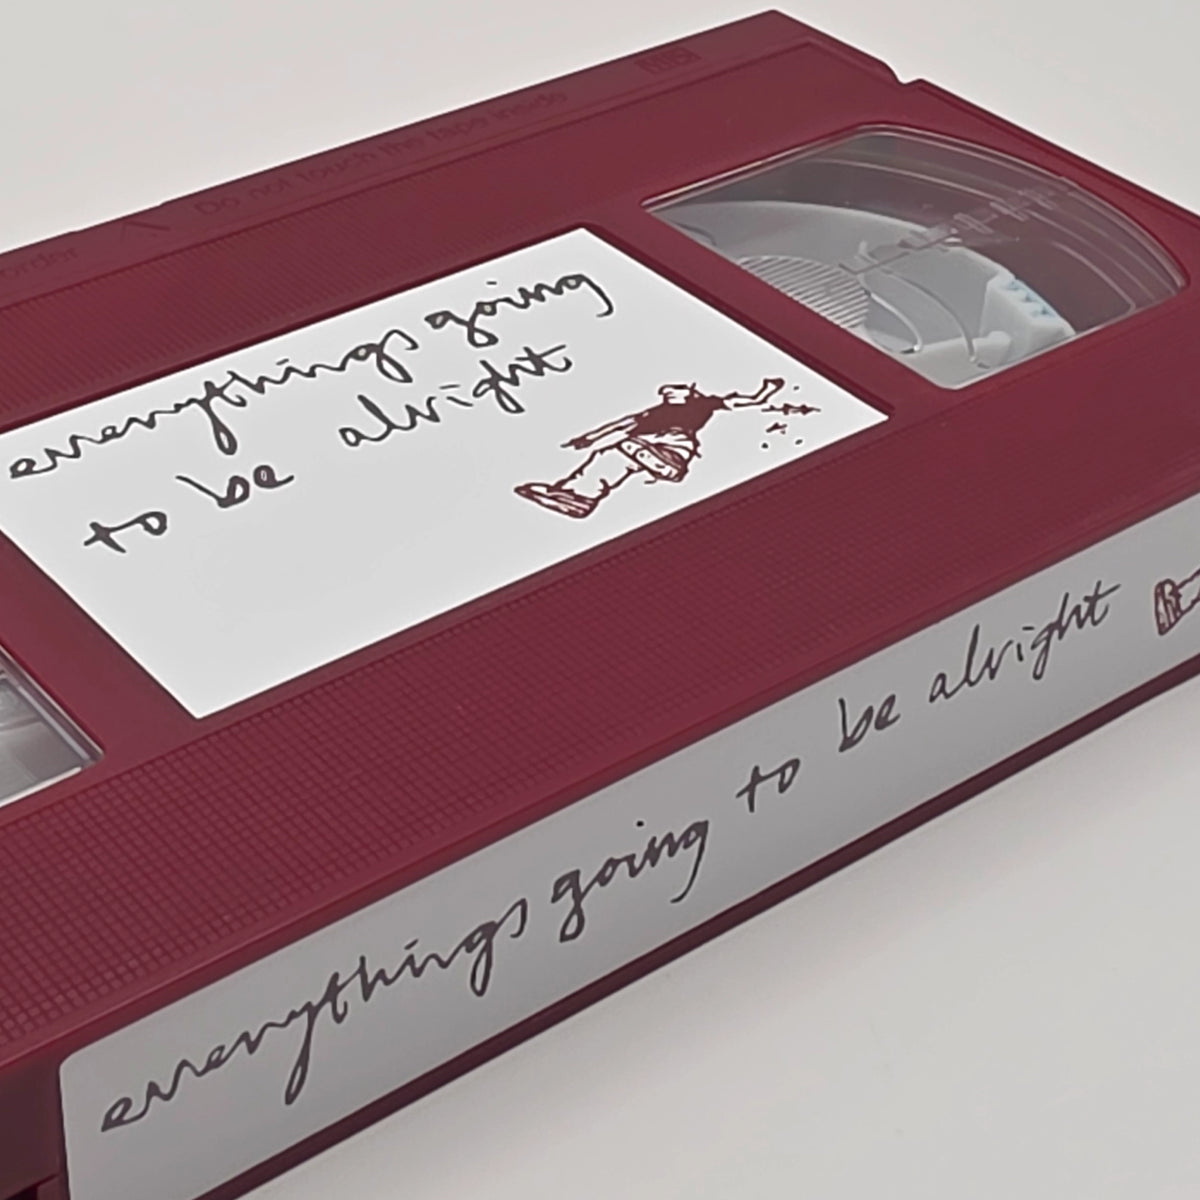 order
Do not touch the tape inside
VHS
everythings going
to be alright
everythings going to be alright